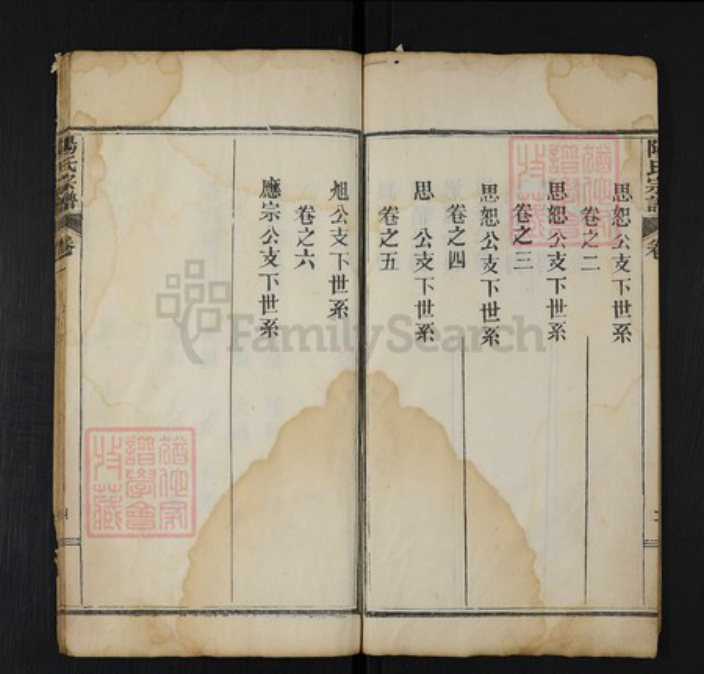 思恕公支下世系
卷之二
思恕公支下世系
卷之三
思恕公支下世系
卷之四
思 公支下世系
卷之五
旭公支下世系
卷之六
應宗公支下世系
氏宗譜
卷
氏宗譜 卷
猶他家譜學會特藏
猶他家譜學會特藏
FamilySearch